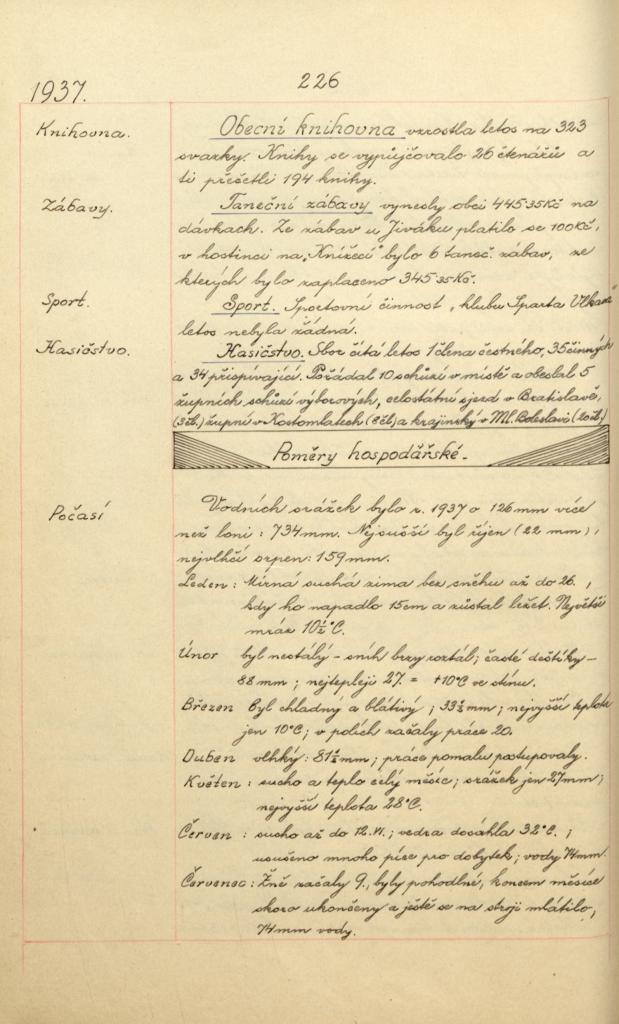 1937.
226
Knihovna.
Obecní knihovna vzrostla letos na 323
svazky. Knihy se vypůjčovalo 26 čtenářů a
ti přečetli 194 knihy.
Zábavy.
Taneční zábavy vynesly obci 445·35Kč na
dávkách. Ze zábav u Jiváku platilo se 100Kč,
v hostinci na „Knížecí" bylo 6 taneč. zábav, ze
kterých bylo zaplaceno 345·35Kč.
Sport.
Sport. Sportovní činnost „klubu Sparta
letos nebyla žádná.
Hasičstvo.
Hasičstvo. Sbor čítá letos 1 člena čestného, 35 činných
a 34 přispívající. Pořádal 10 schůzí v místě a obeslal 5
župních schůzí výborových, celostátní sjezd v Bratislavě,
(3čl.) župní v Kostomlatech (8čl) a krajinský v Ml. Boleslavi (20čl.)
Poměry hospodářské.
Počasí
Vodních srážek bylo r. 1937 o 126mm více
než loni: 734mm. Nejsušší byl říjen (22 mm),
nejvlhčí srpen: 159mm.
Leden: Mírná suchá zima bez sněhu až do 26.,
kdy ho napadlo 15cm a zůstal ležet. Největší
mráz 10½°C.
Únor byl nestálý – sníh brzy roztál; časté deštíky –
88mm; nejtepleji 27. = +10°C ve stínu.
Březen byl chladný a blátivý; 33½mm; nejvyšší teplota
jen 10°C; v polích začaly práce 20.
Duben vlhký: 81½mm; práce pomalu postupovaly.
Květen: sucho a teplo celý měsíc; srážek jen 27mm;
nejvyšší teplota 28°C.
Červen: sucho až do 12.VI.; vedra dosáhla 32°C.;
usušeno mnoho píce pro dobytek; vody 74mm.
Červenec: Žně začaly 9., byly pohodlné, koncem měsíce
skoro ukončeny a ještě se na stroji mlátilo,
74mm vody.